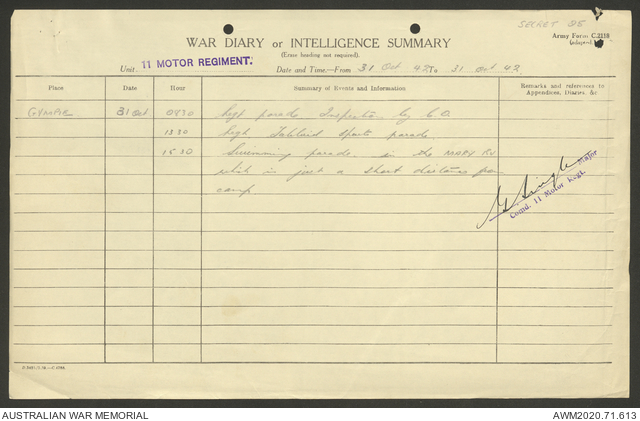 SECRET 25
WAR DIARY or INTELLIGENCE SUMMARY
Army Form C.2118
(Erase heading not required).
(adapted)
Unit. 11 MOTOR REGIMENT. Date and Time.—From 31 Oct 42 To 31 Oct 42.
Place Date Hour Summary of Events and Information Remarks and references to
Appendices, Diaries, &c
GYMPIE 31 Oct 0730 Regt parade Inspection by C.O.
1330 Regt Tabloid Sports parade.
1630 Swimming parade in the MARY RV
which is just a short distance from
camp
Major
Comd. 11 Motor Regt.
AUSTRALIAN WAR MEMORIAL AWM2020.71.613